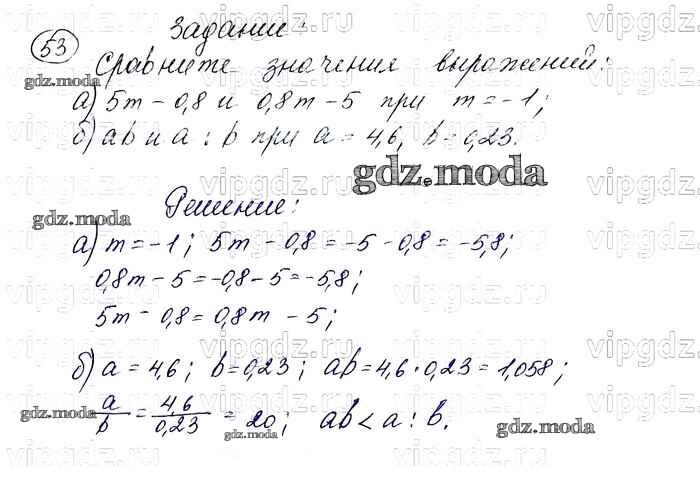 53 Задание:
Сравните значения выражений:
а) 5m - 0,8 и 0,8m - 5 при m = -1;
б) ab и a : b при a = 4,6, b = 0,23.
Решение:
а) m = -1; 5m - 0,8 = -5 - 0,8 = -5,8;
0,8m - 5 = -0,8 - 5 = -5,8;
5m - 0,8 = 0,8m - 5;
б) a = 4,6; b = 0,23; ab = 4,6 · 0,23 = 1,058;
a/b = 4,6/0,23 = 20; ab < a : b.
gdz.moda
gdz.moda
gdz.moda
gdz.moda
gdz.moda
gdz.moda
gdz.moda
vipgdz.ru